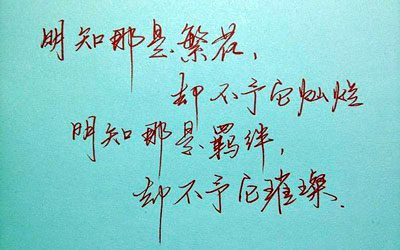 明知那是繁花，
却不予它灿烂
明知那是羁绊，
却不予它璀璨.